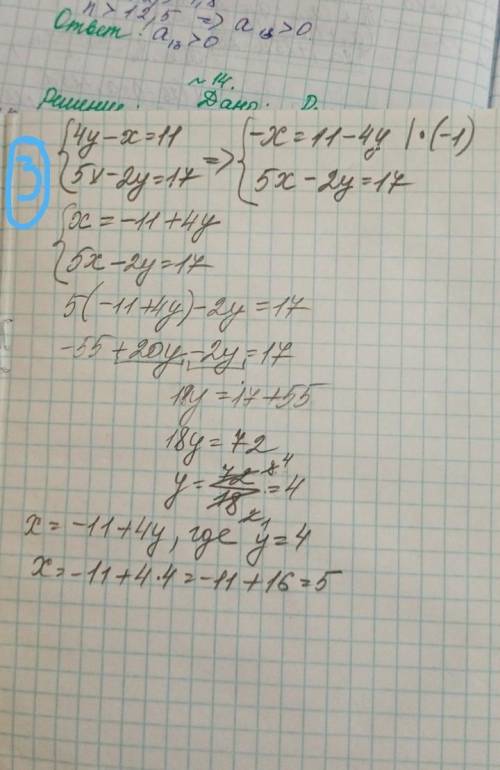 n > 12,5 => a₁₃ > 0.
Ответ: a₁₃ > 0
~ 14.
Решение: Дано: D.
3
{4y - x = 11 => {-x = 11 - 4y | · (-1)
{5x - 2y = 17 {5x - 2y = 17
{x = -11 + 4y
{5x - 2y = 17
5(-11 + 4y) - 2y = 17
-55 + 20y - 2y = 17
18y = 17 + 55
18y = 72
y = 72/18 = 4
x = -11 + 4y, где y = 4
x = -11 + 4·4 = -11 + 16 = 5